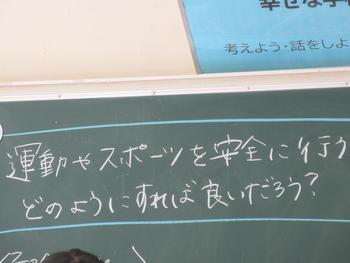 考えよう・話をしよ
運動やスポーツを安全に行う
どのようにすれば良いだろう?